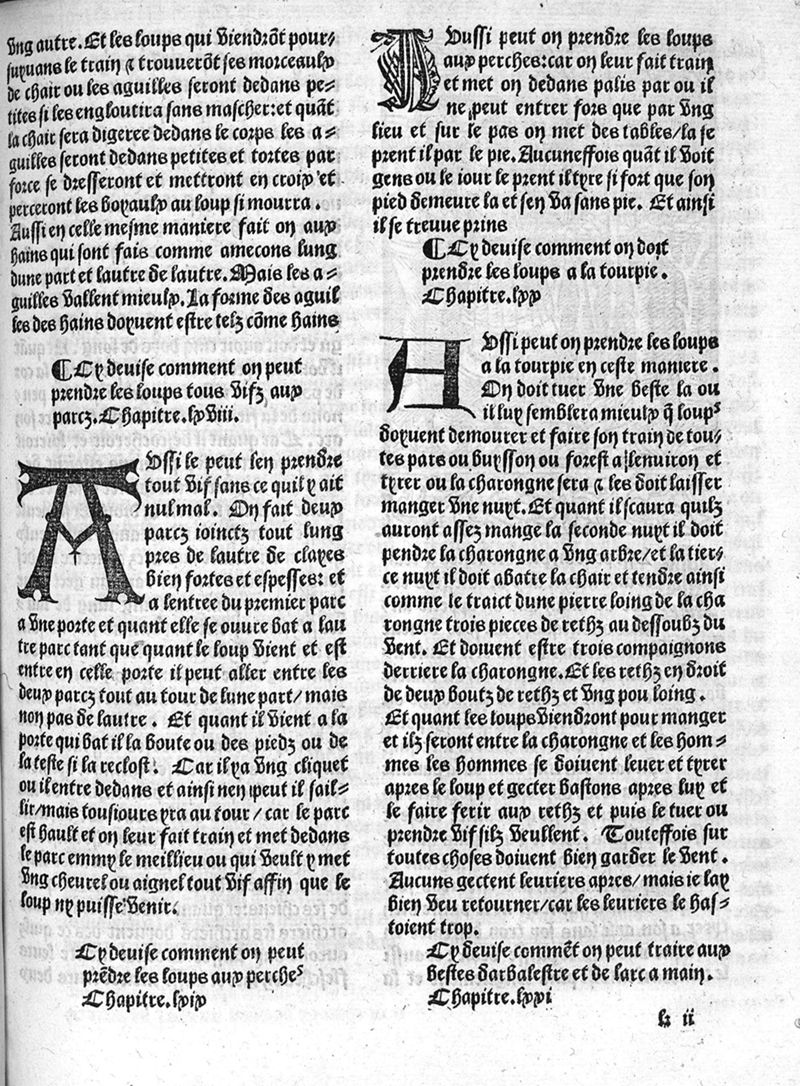 vng autre. Et les loups qui viendrõt pour⸗
suyuans le train ⁊ trouuerõt ses morceaulx
de chair ou les aguilles seront dedans pe⸗
tites si les engloutira sans mascher: et quãt
la chair sera digeree dedans le corps les a⸗
guilles seront dedans petites et tortes par
force se dresseront et mettront en croix et
perceront les boyaulx au loup si mourra.
Aussi en celle mesme maniere fait on aux
hains qui sont fais comme amecons lung
dune part et lautre de lautre. Mais les a⸗
guilles vallent mieulx. La forme des aguil
les des hains doyuent estre telz cõme hains
¶ Cy deuise comment on peut
prendre les loups tous vifz aux
parcz. Chapitre. lxviii.
AUssi le peut len prendre
tout vif sans ce quil y ait
nul mal. On fait deux
parcz ioinctz tout lung
pres de lautre de clayes
bien fortes et espesses: et
a lentree du premier parc
a vne porte et quant elle se ouure bat a lau
tre parc tant que quant le loup vient et est
entre en celle porte il peut aller entre les
deux parcz tout au tour de lune part/ mais
non pas de lautre. Et quant il vient a la
porte qui bat il la boute ou des piedz ou de
la teste si la reclost. Car il ya vng cliquet
ou il entre dedans et ainsi nen peut il sail⸗
lir/ mais tousiours yra au tour/ car le parc
est hault et on leur fait train et met dedans
le parc emmy le meillieu ou qui veult y met
vng cheurel ou aignel tout vif affin que le
loup ny puisse venir.
Cy deuise comment on peut
prẽdre les loups aux perches
Chapitre. lxix
AUussi peut on prendre les loups
aux perches: car on leur fait train
et met on dedans palis par ou il
ne peut entrer fors que par vng
lieu et sur le pas on met des tables/ la se
prent il par le pie. Aucuneffois quãt il voit
gens ou le iour le prent il tyre si fort que son
pied demeure la et sen va sans pie. Et ainsi
il se treuue prins
¶ Cy deuise comment on doit
prendre les loups a la tourpie.
Chapitre. lxx
AUssi peut on prendre les loups
a la tourpie en ceste maniere.
On doit tuer vne beste la ou
il luy semblera mieulx q̃ loups
doyuent demourer et faire son train de tou⸗
tes pars ou buysson ou forest a lenuiron et
tyrer ou la charongne sera ⁊ les doit laisser
manger vne nuyt. Et quant il scaura quilz
auront assez mange la seconde nuyt il doit
pendre la charongne a vng arbre/ et la tier⸗
ce nuyt il doit abatre la chair et tendre ainsi
comme le traict dune pierre loing de la cha
rongne trois pieces de rethz au dessoubz du
vent. Et doiuent estre trois compaignons
derriere la charongne. Et les rethz en droit
de deux boutz de rethz et vng pou loing.
Et quant les loups viendront pour manger
et ilz seront entre la charongne et les hom⸗
mes les hommes se doiuent leuer et tyrer
apres le loup et gecter bastons apres luy et
le faire ferir aux rethz et puis le tuer ou
prendre vif silz veullent. Touteffois sur
toutes choses doiuent bien garder le vent.
Aucuns gectent leuriers apres/ mais ie lay
bien veu retourner/ car les leuriers le has⸗
toient trop.
Cy deuise commẽt on peut traire aux
bestes darbalestre et de larc a main.
Chapitre. lxxi
k ii